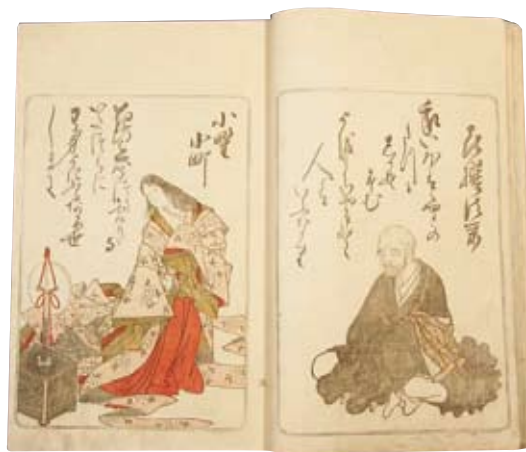 喜撰法師
我いほはみやこの
たつみ
しかそ
すむ
よをうちやまと
人は
いふなり
小野
小町
花の色はうつりにけりな
いたつらに
わか身世にふるなかめせ
しまに